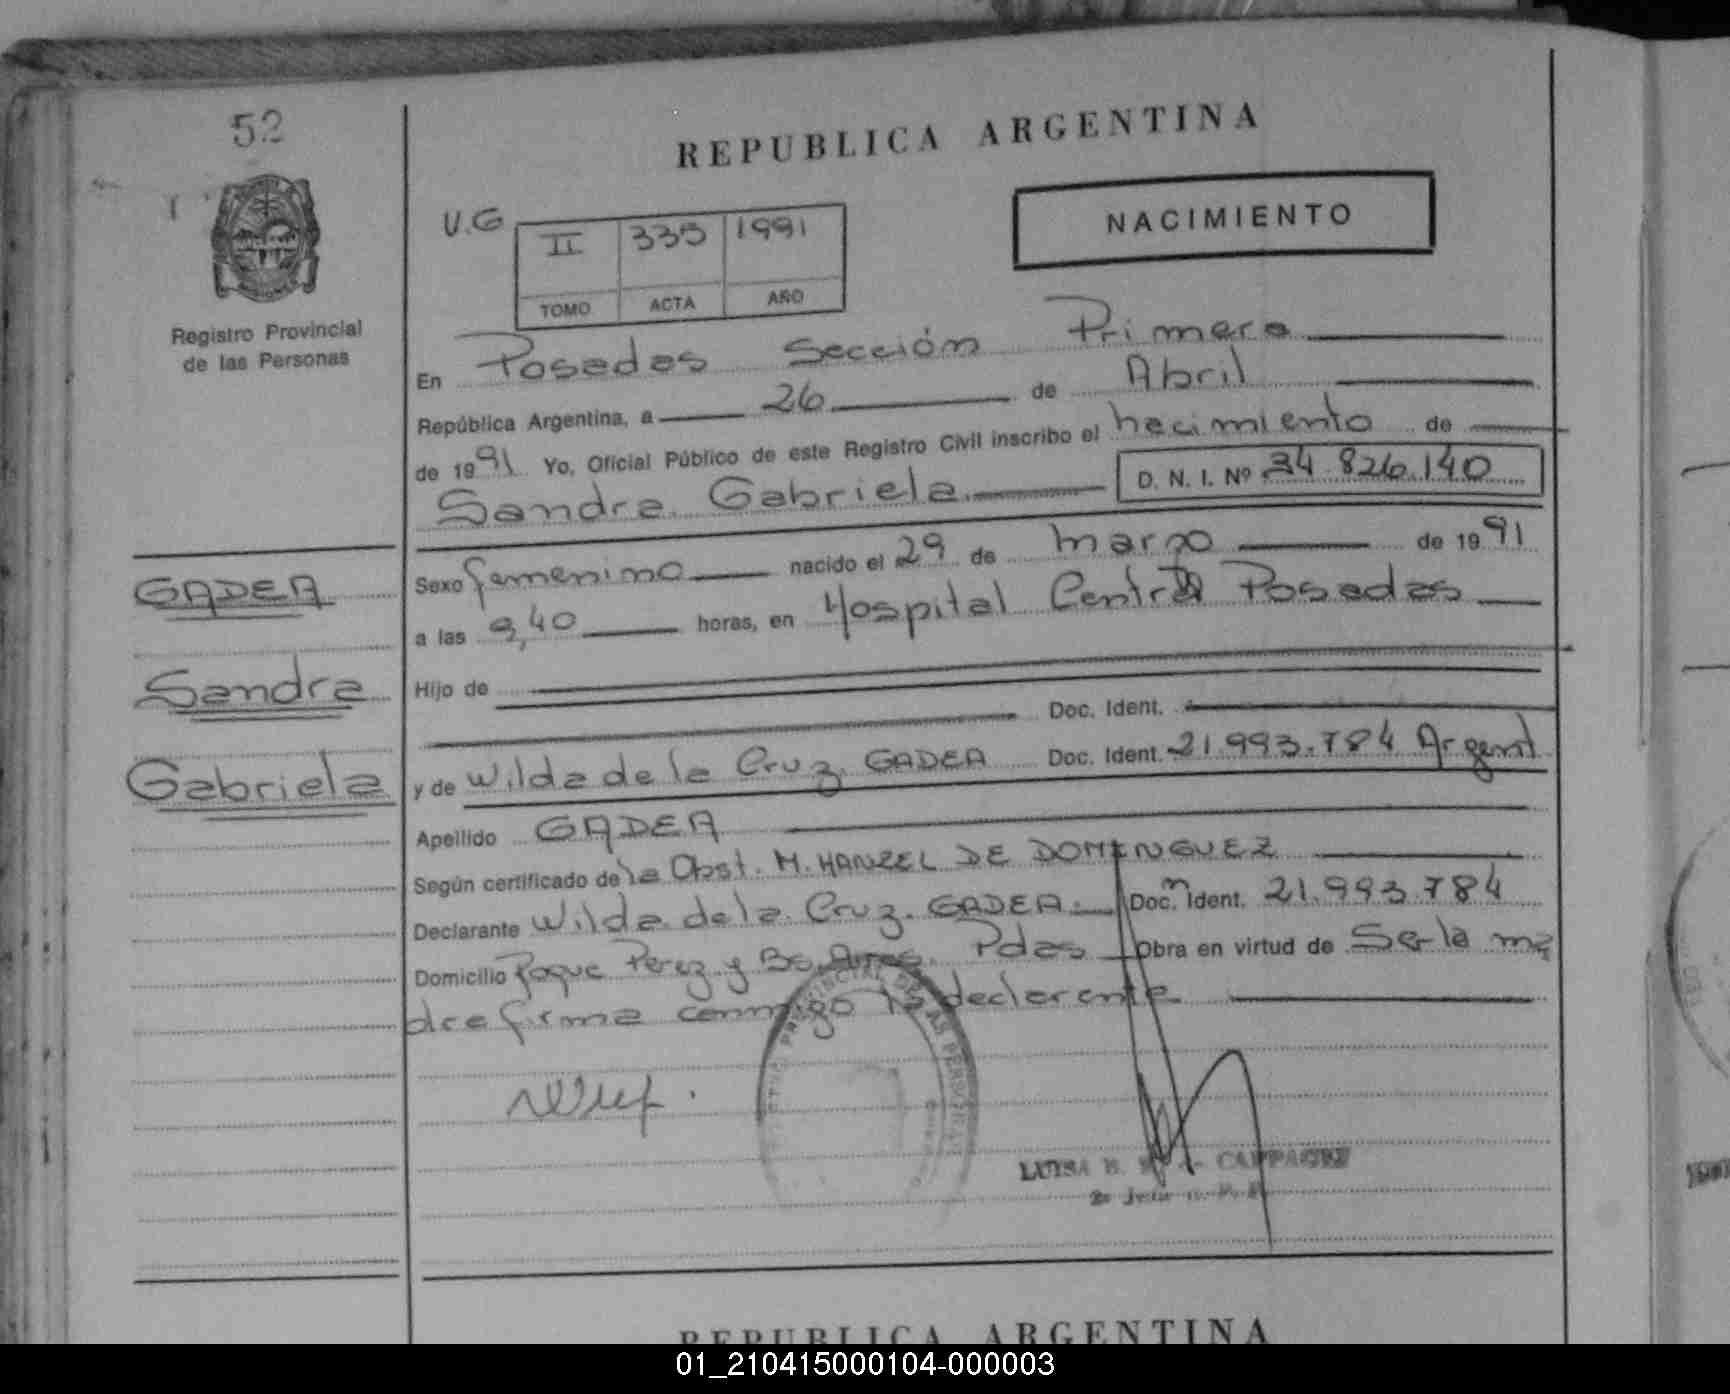 52
Registro Provincial
de las Personas
GADEA
Sandra
Gabriela
REPUBLICA ARGENTINA
V.G
II 335 1991
TOMO ACTA AÑO
NACIMIENTO
En Posadas Sección Primera
República Argentina, a 26 de Abril
de 1991 Yo, Oficial Público de este Registro Civil inscribo el nacimiento de
Sandra Gabriela D. N. I. Nº 34.826.140
Sexo femenino nacido el 29 de marzo de 1991
a las 9,40 horas, en Hospital Central Posadas
Hijo de
Doc. Ident.
y de Wilda de la Cruz GADEA Doc. Ident. 21.993.784 Argent
Apellido GADEA
Según certificado de la Obst. M. HANZEL DE DOMINGUEZ
Declarante Wilda de la Cruz GADEA. Doc. Ident. 21.993.784
Domicilio Roque Perez y Bs. Aires. Pdas Obra en virtud de Ser la ma
dre firma conmigo la declarante
PROVINCIAL DE LAS PERSONAS
LUISA
REPUBLICA ARGENTINA
01_210415000104-000003